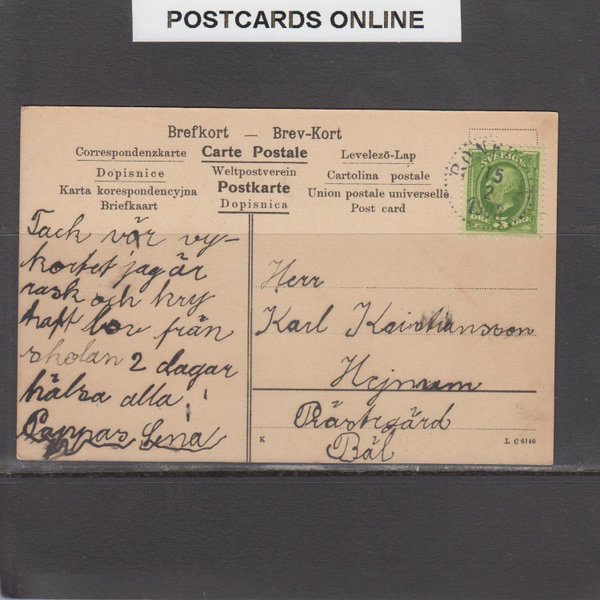 POSTCARDS ONLINE
Brefkort — Brev-Kort
Correspondenzkarte Carte Postale Levelező-Lap
Dopisnice Weltpostverein Cartolina postale
Karta korespondencyjna Postkarte Union postale universelle
Briefkaart Dopisnica Post card
SVERIGE
5
ÖRE
15
2
Tack vör vy-
kortet jag är
rask och kry
haft lov från
skolan 2 dagar
hälsa alla!
Pappas Lena
Herr
Karl Kristiansson
Hejnum
Prästegård
Bäl
K
L C 6146